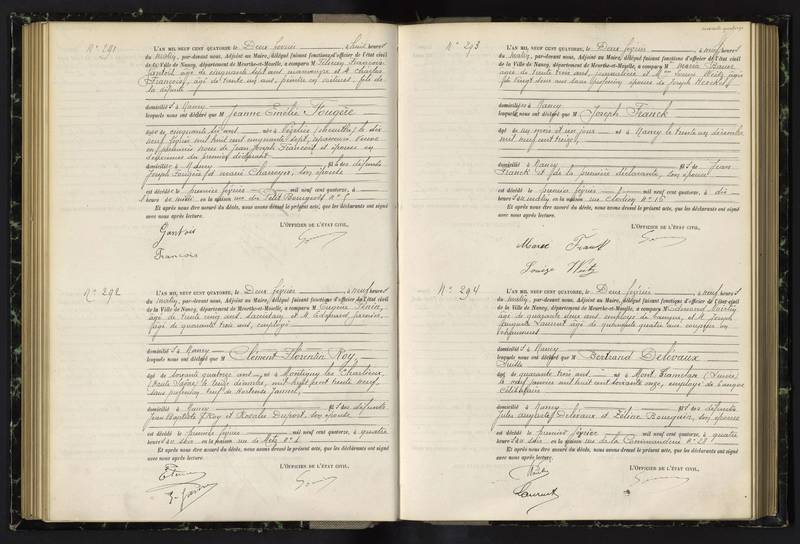 N° 291
L'AN MIL NEUF CENT QUATORZE, le Deux février à huit heures
du matin, par-devant nous, Adjoint au Maire, délégué faisant fonctions d'officier de l'état civil
de la Ville de Nancy, département de Meurthe-et-Moselle, a comparu M François
Gantois âgé de cinquante sept ans et M Charles
François, âgé de trente un ans, peintre en voitures, fils de
la défunte
domiciliés à Nancy
lesquels nous ont déclaré que M Jeanne Emélie Fougère
âgée de cinquante six ans née à
neuf février mil huit cent cinquante sept, veuve
en premières noces de Jean Joseph François et épouse en
du premier déclarant
domiciliée à Nancy fille des défunts
Joseph Fougère et son épouse
est décédée le premier février mil neuf cent quatorze, à
heures en la maison rue du Petit Bourgeois N°
Et après nous être assuré du décès, nous avons dressé le présent acte, que les déclarants ont signé
avec nous après lecture.
L'OFFICIER DE L'ÉTAT CIVIL,
Gantois
François
N° 292
L'AN MIL NEUF CENT QUATORZE, le Deux février à neuf heures
du matin, par-devant nous, Adjoint au Maire, délégué faisant fonctions d'officier de l'état civil
de la Ville de Nancy, département de Meurthe-et-Moselle, a comparu M Eugène
âgé de trente cinq ans, sacristain, et M Edouard
âgé de quarante trois ans, employé
domiciliés à Nancy
lesquels nous ont déclaré que M Clément Florentin Roy,
âgé de soixante quatorze ans né à Montigny les
(Haute Saône) le trente décembre mil huit cent trente neuf,
sans profession, veuf de Hortense
domicilié à Nancy fils des défunts
Jean Baptiste Roy et Rosalie Dupont, son épouse
est décédé le premier février mil neuf cent quatorze, à quatre
heures du soir en la maison rue de Metz N°
Et après nous être assuré du décès, nous avons dressé le présent acte, que les déclarants ont signé
avec nous après lecture.
L'OFFICIER DE L'ÉTAT CIVIL,
N° 293
L'AN MIL NEUF CENT QUATORZE, le Deux février à neuf heures
du matin, par-devant nous, Adjoint au Maire, délégué faisant fonctions d'officier de l'état civil
de la Ville de Nancy, département de Meurthe-et-Moselle, a comparu M Maria
âgée de trente trois ans, journalière et Louise Weitz âgée
de vingt deux ans sans profession épouse de Joseph
domiciliées à Nancy
lesquels nous ont déclaré que M Joseph Franck
âgé de un mois et un jour né à Nancy le trente un décembre
mil neuf cent treize,
domicilié à Nancy fils de Jean
Franck et de la première déclarante, son épouse
est décédé le premier février mil neuf cent quatorze, à dix
heures du matin en la maison rue Clodion N° 16
Et après nous être assuré du décès, nous avons dressé le présent acte, que les déclarants ont signé
avec nous après lecture.
L'OFFICIER DE L'ÉTAT CIVIL,
Louise Weitz
N° 294
L'AN MIL NEUF CENT QUATORZE, le Deux février à neuf heures
du matin, par-devant nous, Adjoint au Maire, délégué faisant fonctions d'officier de l'état civil
de la Ville de Nancy, département de Meurthe-et-Moselle, a comparu M
âgé de quarante deux ans, employé de banque, et M Joseph
Auguste Laurent âgé de quarante quatre ans
domiciliés à Nancy
lesquels nous ont déclaré que M Bertrand Delévaux
âgé de quarante trois ans né à Mont Tramelan (Suisse)
le neuf janvier mil huit cent soixante onze, employé de banque
célibataire
domicilié à Nancy fils des défunts
Jules Auguste Delévaux et Zéline Bourquin, son épouse
est décédé le premier février mil neuf cent quatorze, à quatre
heures du soir en la maison rue de la Commanderie N° 28
Et après nous être assuré du décès, nous avons dressé le présent acte, que les déclarants ont signé
avec nous après lecture.
L'OFFICIER DE L'ÉTAT CIVIL,
Laurent